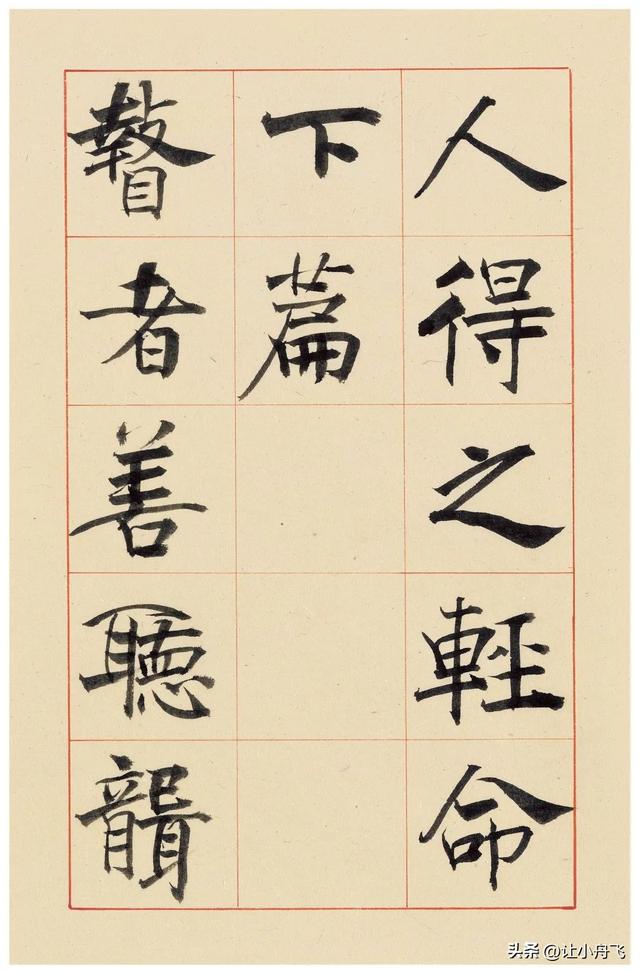 人得之輕命
下篇
瞽者善聽聾
头条 @让小舟飞